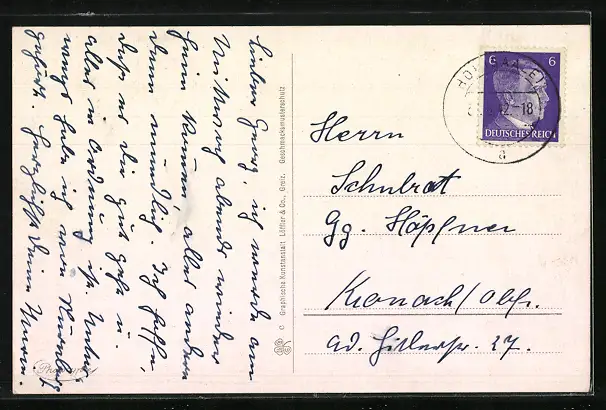 Lieber Georg, ich werde am
Mittwoch abends wieder
heim kommen, alles andere
dann mündlich. Ich hoffe
dass es Dir gut geht u.
alles in Ordnung ist. Unter-
wegs habe ich
gehört. Herzlichst Deine
Graphische Kunstanstalt Löffler & Co., Greiz. Geschmacksmusterschutz
6 6
DEUTSCHES REICH
-18
a
Herrn
Schulrat
Gg. Höpfner
Kronach/Obfr.
Ad. Hitlerstr. 27.